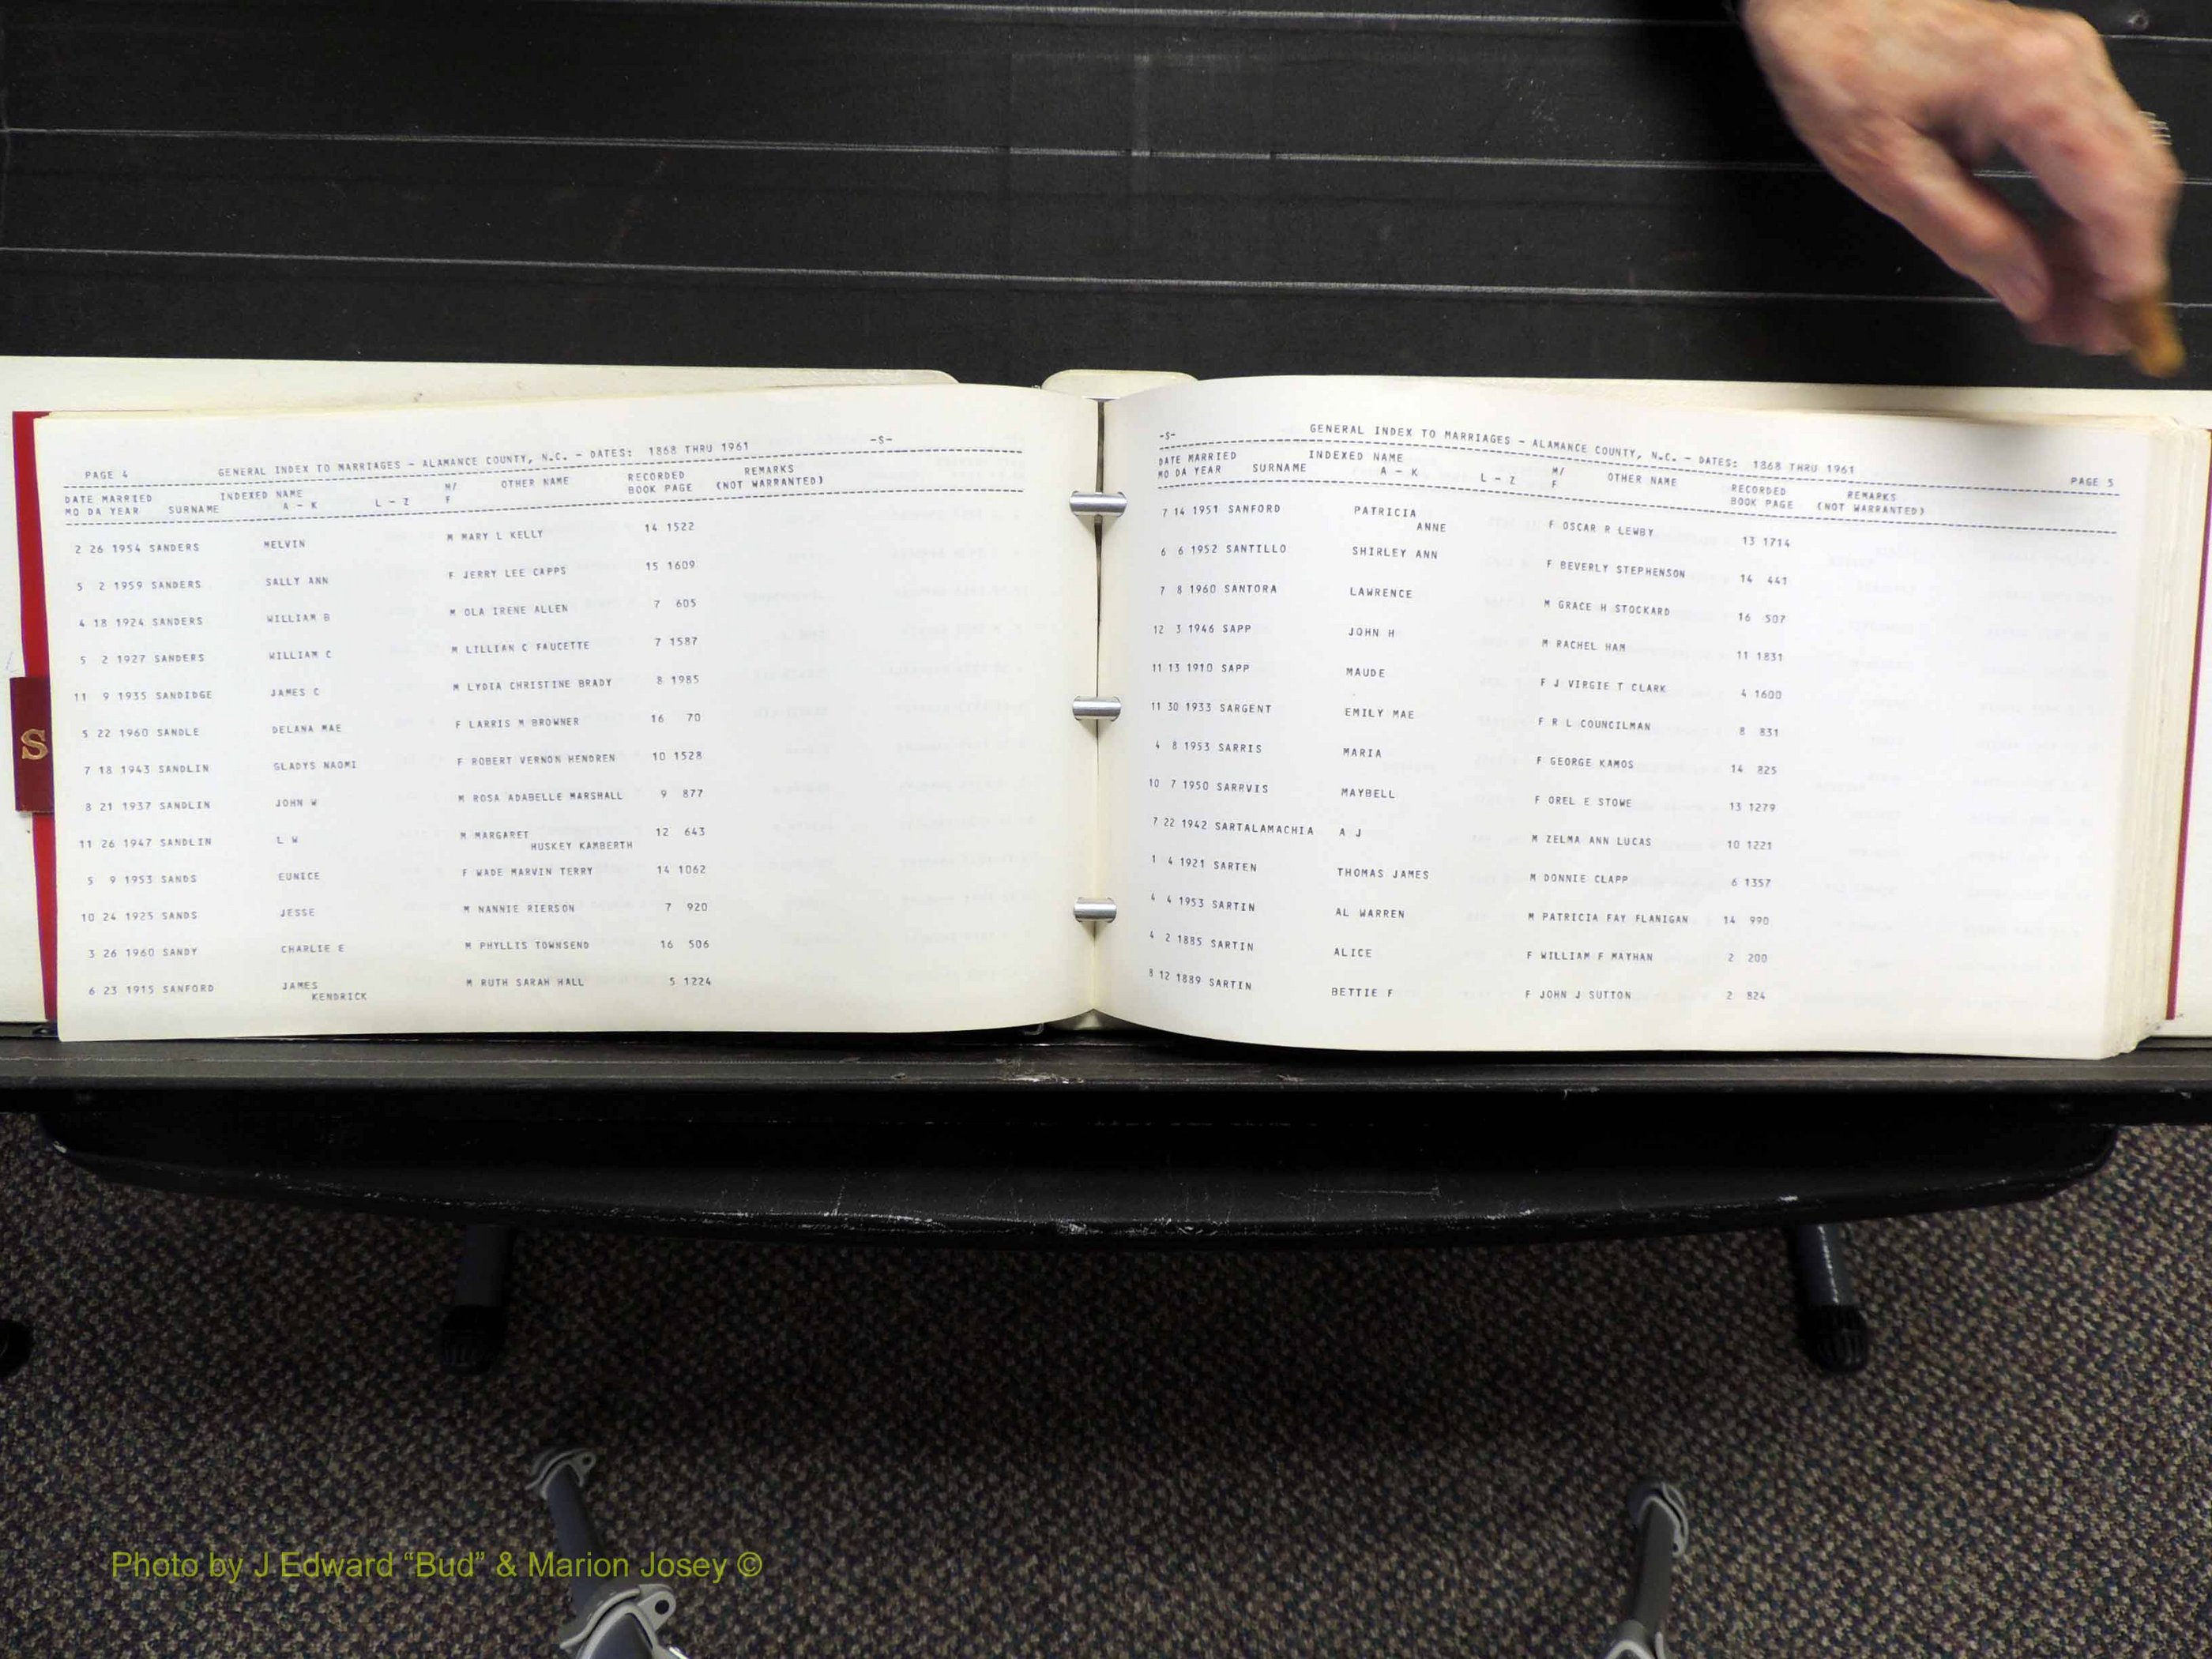 PAGE 4 GENERAL INDEX TO MARRIAGES - ALAMANCE COUNTY, N.C. - DATES: 1868 THRU 1961 -S-
DATE MARRIED INDEXED NAME M/ OTHER NAME RECORDED REMARKS
MO DA YEAR SURNAME A - K L - Z F BOOK PAGE (NOT WARRANTED)
2 26 1954 SANDERS MELVIN M MARY L KELLY 14 1522
5 2 1959 SANDERS SALLY ANN F JERRY LEE CAPPS 15 1609
4 18 1924 SANDERS WILLIAM B M OLA IRENE ALLEN 7 605
5 2 1927 SANDERS WILLIAM C M LILLIAN C FAUCETTE 7 1587
11 9 1935 SANDIDGE JAMES C M LYDIA CHRISTINE BRADY 8 1985
5 22 1960 SANDLE DELANA MAE F LARRIS M BROWNER 16 70
7 18 1943 SANDLIN GLADYS NAOMI F ROBERT VERNON HENDREN 10 1528
8 21 1937 SANDLIN JOHN W M ROSA ADABELLE MARSHALL 9 877
11 26 1947 SANDLIN L W M MARGARET 12 643
HUSKEY KAMBERTH
5 9 1953 SANDS EUNICE F WADE MARVIN TERRY 14 1062
10 24 1925 SANDS JESSE M NANNIE RIERSON 7 920
3 26 1960 SANDY CHARLIE E M PHYLLIS TOWNSEND 16 506
6 23 1915 SANFORD JAMES M RUTH SARAH HALL 5 1224
KENDRICK
-S- GENERAL INDEX TO MARRIAGES - ALAMANCE COUNTY, N.C. - DATES: 1868 THRU 1961 PAGE 5
DATE MARRIED INDEXED NAME M/ OTHER NAME RECORDED REMARKS
MO DA YEAR SURNAME A - K L - Z F BOOK PAGE (NOT WARRANTED)
7 14 1951 SANFORD PATRICIA F OSCAR R LEWBY 13 1714
ANNE
6 6 1952 SANTILLO SHIRLEY ANN F BEVERLY STEPHENSON 14 441
7 8 1960 SANTORA LAWRENCE M GRACE H STOCKARD 16 507
12 3 1946 SAPP JOHN H M RACHEL HAM 11 1831
11 13 1910 SAPP MAUDE F J VIRGIE T CLARK 4 1600
11 30 1933 SARGENT EMILY MAE F R L COUNCILMAN 8 831
4 8 1953 SARRIS MARIA F GEORGE KAMOS 14 825
10 7 1950 SARRVIS MAYBELL F OREL E STOWE 13 1279
7 22 1942 SARTALAMACHIA A J M ZELMA ANN LUCAS 10 1221
1 4 1921 SARTEN THOMAS JAMES M DONNIE CLAPP 6 1357
4 4 1953 SARTIN AL WARREN M PATRICIA FAY FLANIGAN 14 990
4 2 1885 SARTIN ALICE F WILLIAM F MAYHAN 2 200
8 12 1889 SARTIN BETTIE F F JOHN J SUTTON 2 824
S
Photo by J Edward “Bud” & Marion Josey ©